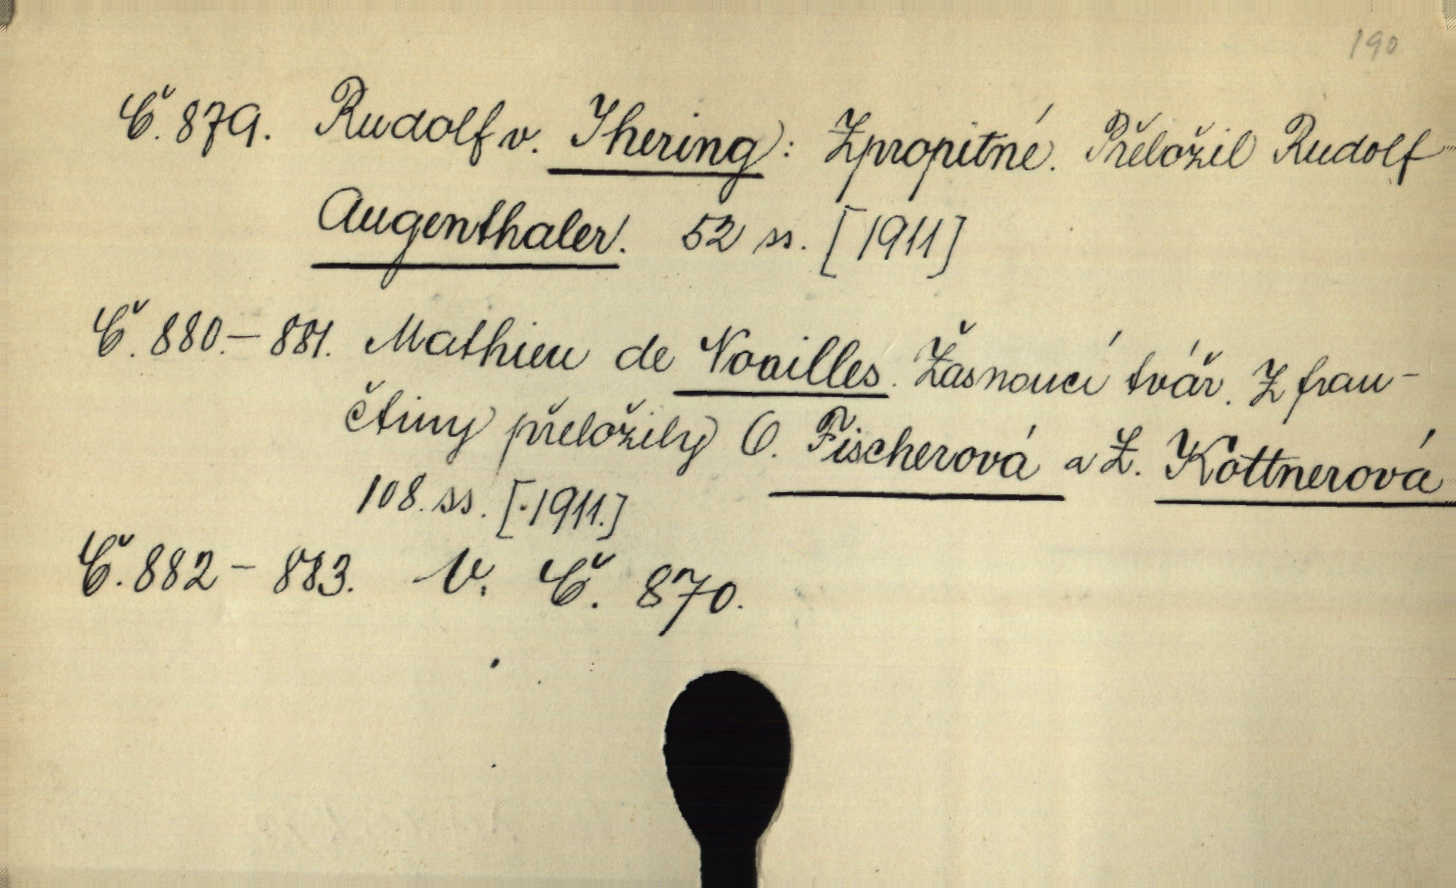 190
Č. 879. Rudolf v. Ihering: Zpropitné. Přeložil Rudolf
Augenthaler. 52 ss. [1911]
Č. 880.- 881. Mathieu de Noailles. Žasnoucí tvář. Z fran-
čtiny přeložily O. Fischerová a Z. Kottnerová
108. ss. [1911.]
Č. 882 - 883. V. Č. 870.